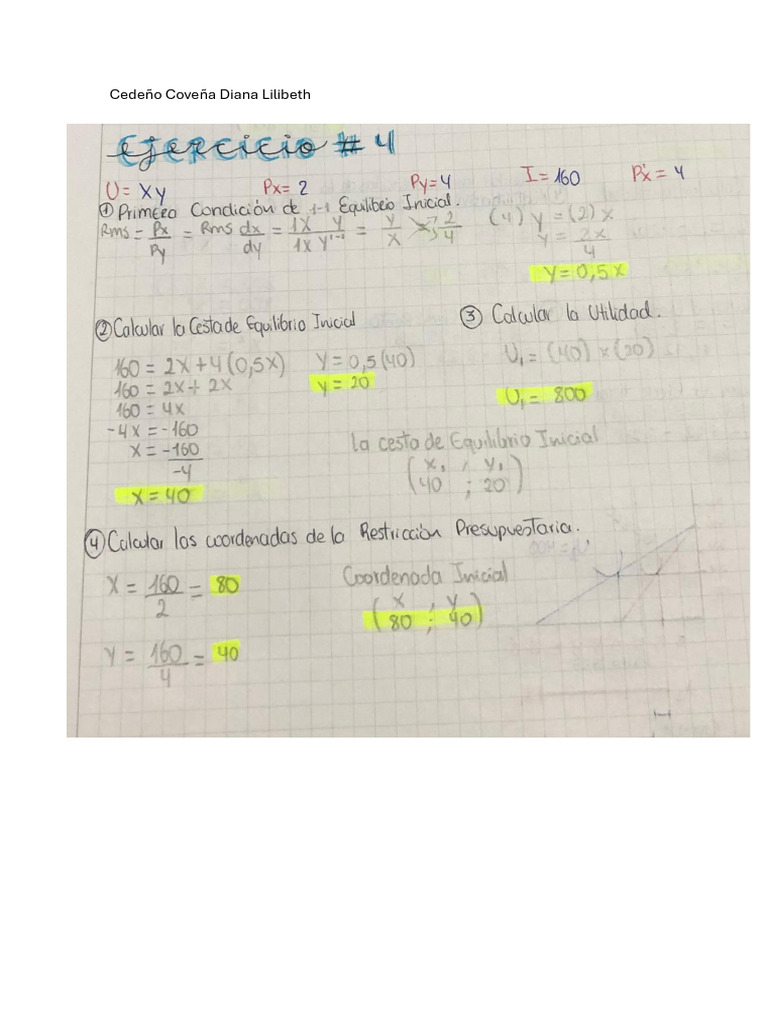 Cedeño Coveña Diana Lilibeth
Ejercicio # 4
U = XY Px = 2 Py = 4 I = 160 P'x = 4
① Primera Condición de Equilibrio Inicial.
Rms = Px/Py = Rms dx/dy = = Y/X 2/4 (4) Y = (2) X
Y = 2X/4
Y = 0,5X
② Calcular la Cesta de Equilibrio Inicial
③ Calcular la Utilidad.
160 = 2X + 4 (0,5X) Y = 0,5 (40)
160 = 2X + 2X Y = 20
160 = 4X
-4X = -160
X = -160/-4
X = 40
U₁ = (40) x (20)
U₁ = 800
la cesta de Equilibrio Inicial
(X₁ , Y₁
40 ; 20)
④ Calcular las coordenadas de la Restricción Presupuestaria.
X = 160/2 = 80
Y = 160/4 = 40
Coordenada Inicial
(X , Y
80 ; 40)